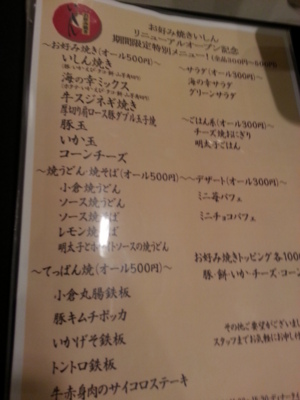 お好み焼きいしん
リニューアルオープン記念
期間限定特別メニュー!
~お好み焼き(オール500円)~
いしん焼き
海の幸ミックス
牛スジネギ焼き
厚切り肩ロース豚ダブル玉子焼
豚玉
いか玉
コーンチーズ
~サラダ(オール300円)~
海の幸サラダ
グリーンサラダ
~ごはん系(オール300円)~
チーズ焼おにぎり
明太子ごはん
~焼うどん 焼そば(オール500円)~
小倉焼うどん
ソース焼うどん
ソース焼そば
レモン焼そば
明太子とホワイトソースの焼うどん
~デザート(オール300円)~
ミニ苺パフェ
ミニチョコパフェ
お好み焼きトッピング各100
豚・餅・いか・チーズ・コーン
~てっぱん焼(オール500円)~
小倉丸腸鉄板
豚キムチポッカ
いかげそ鉄板
トントロ鉄板
牛赤身肉のサイコロステーキ
その他ご要望がございまし
スタッフまでお気軽にお申し付